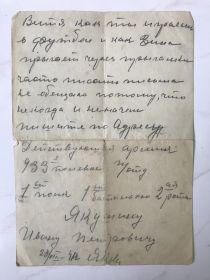 Витя как ты играешь
в футбол и как Вина
прыгает через
часто писать письма
не обещаю потому, что
некогда и незачем
пишите по Адресу
Действующая армия
933 полевая
1 полк 1 батальон 2 рота
Якунину
Ивану Петровичу